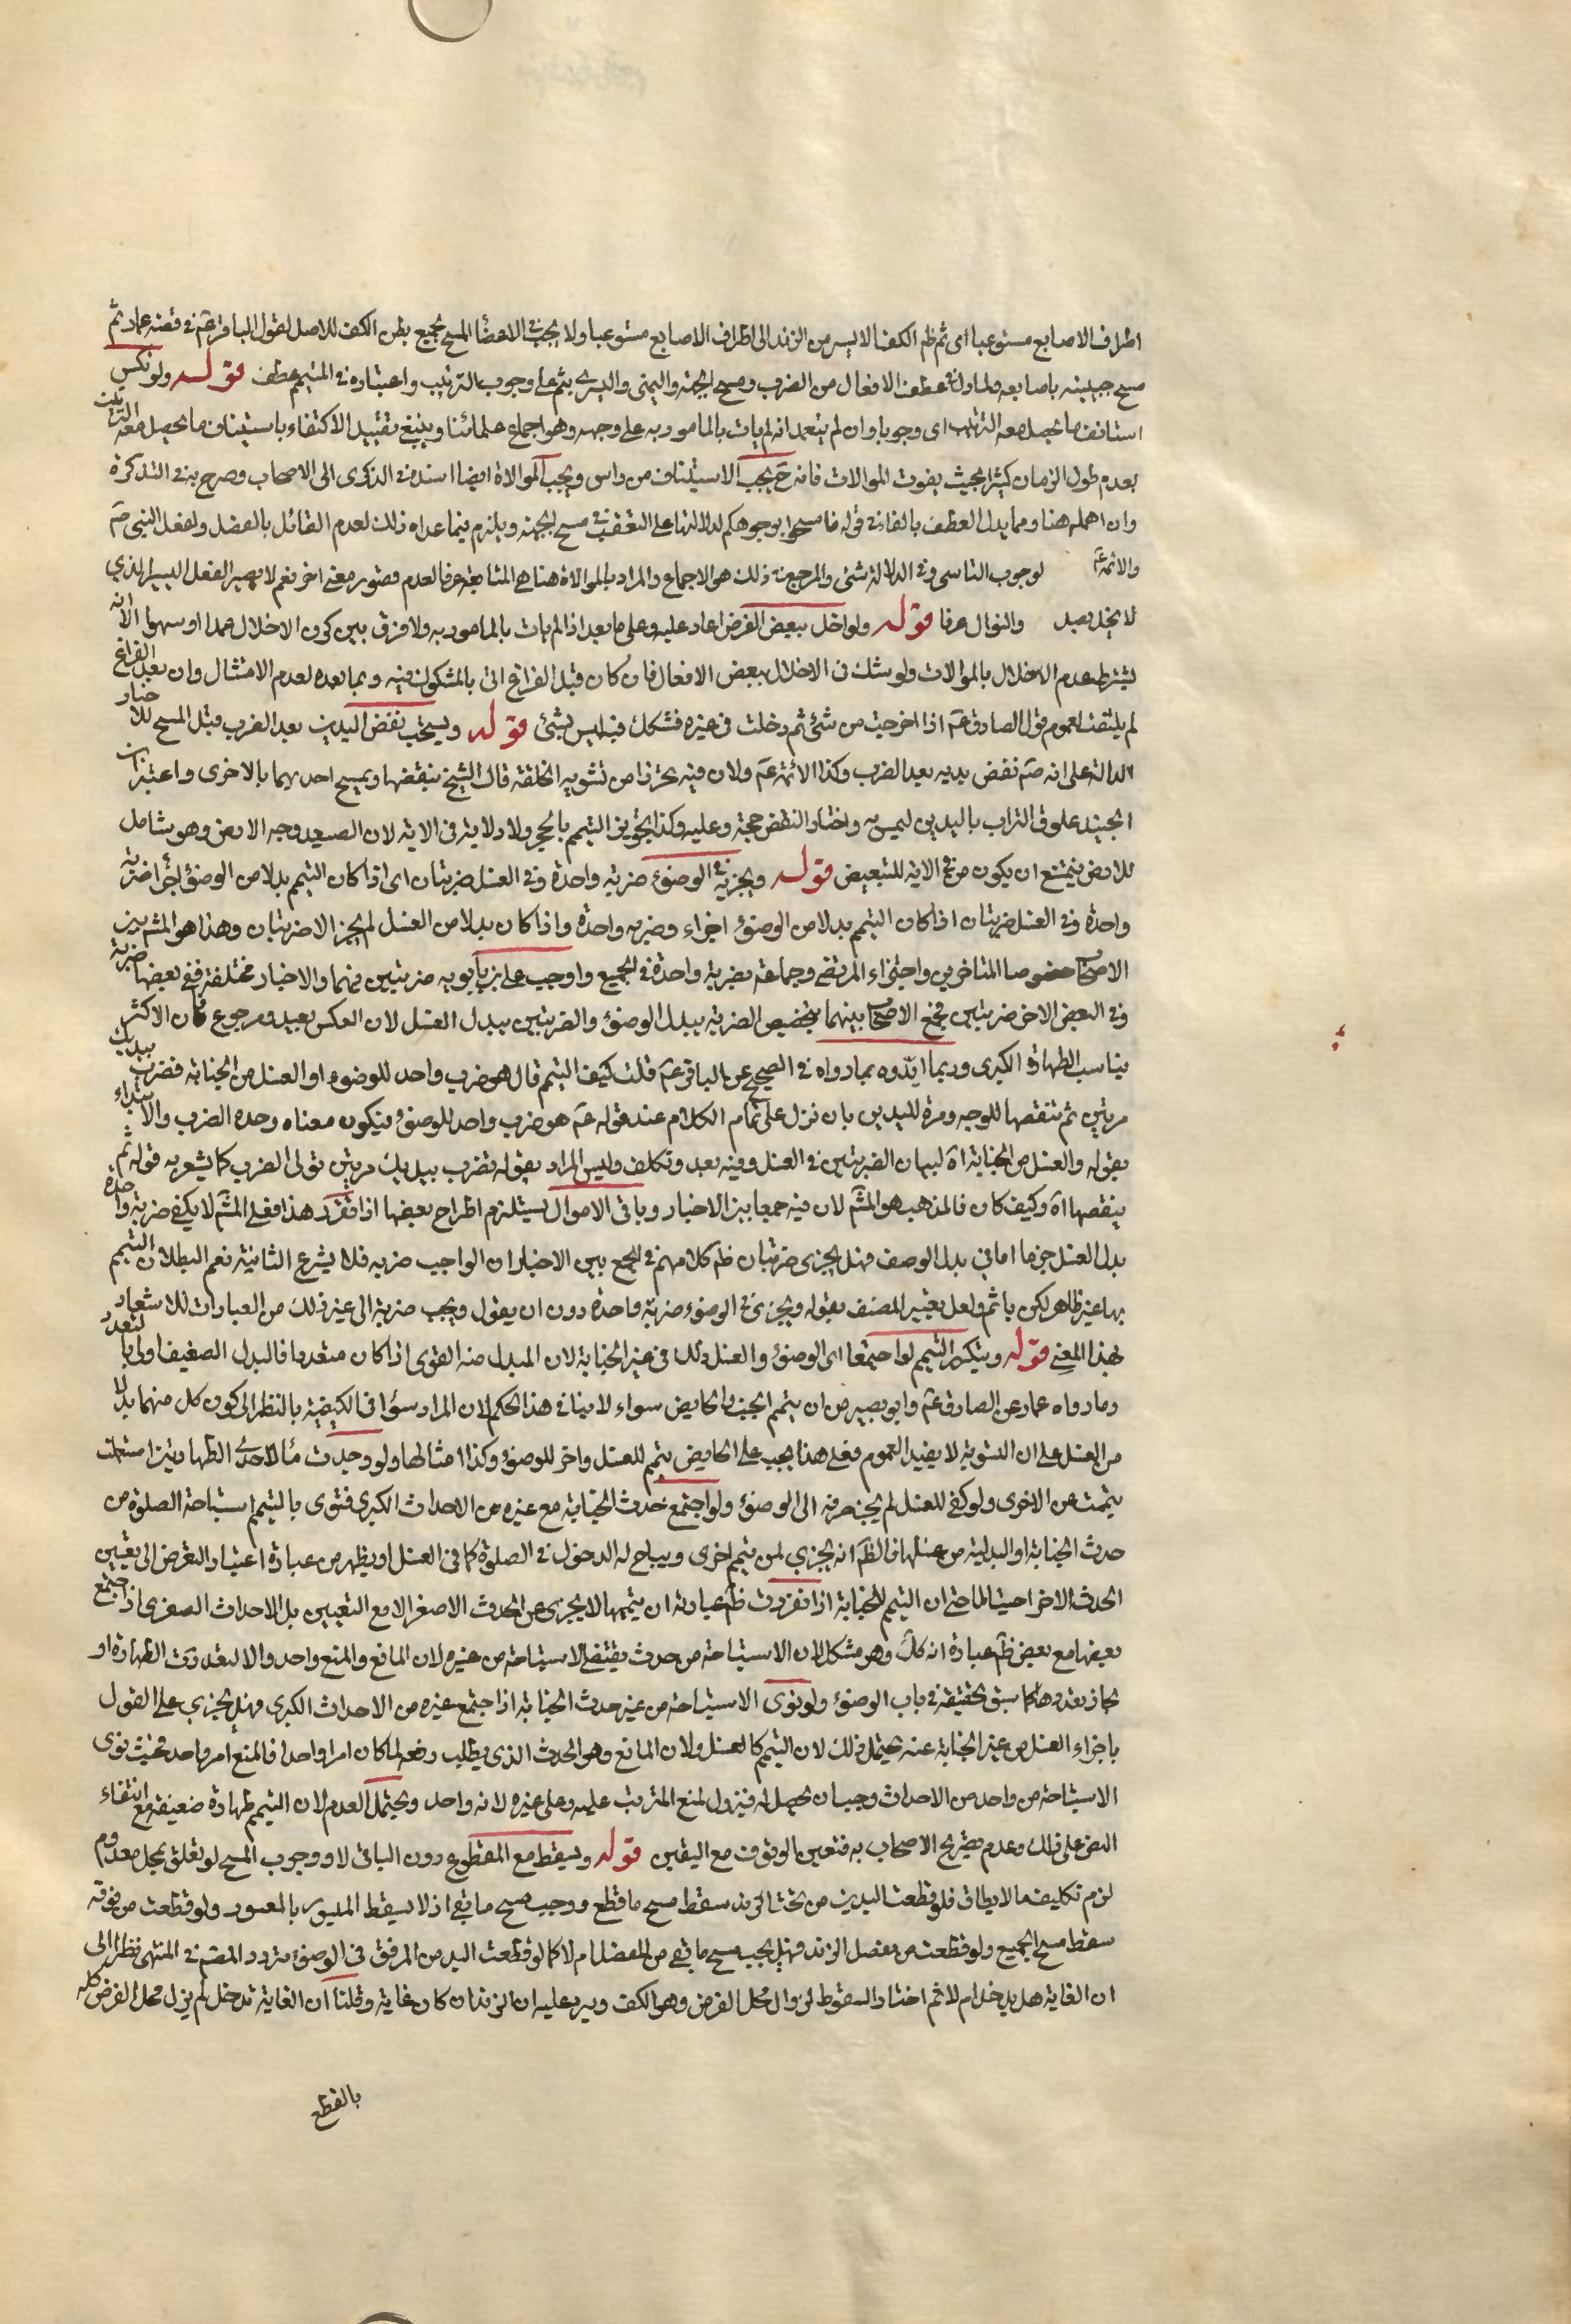 اطراف الاصابع مستوعبا اى ثم ظهر الكف الايسر من الزند الى اطراف الاصابع مستوعبا ولا يجب فى الاعضاء المسح بجميع بطن الكف للاصل لقول الباقر عم فى قصة عمار ثم
مسح جبينه باصابعه ولما دل عطف الافعال من الضرب ومسح الجبهة واليمنى واليسرى بثم على وجوب الترتيب واعتباره فى التيمم عطف قوله ولو نكس
استانف ما يحصل معه الترتيب اى وجوبا وان لم يتعمد انه لم يات بالمامور به على وجهه وهو اجماع علمائنا وينبغى تقييد الاكتفاء باستيناف ما يحصل معه الترتيب
بعدم طول الزمان كثيرا بحيث يفوت الموالات فانه ح يجب الاستيناف من راس ويجب الموالاة ايضا اسنده فى الذكرى الى الاصحاب وصرح به فى التذكرة
وان اهمله هنا ومما يدل العطف بالفاء فى قوله فامسحوا بوجوهكم لدلالتها على التعقيب فى مسح الجبهة ويلزم فيما عداه ذلك لعدم القائل بالفصل ولفعل النبى صم
والائمة عم لوجوب التاسى وفى الدلالة شئ والمرجع فى ذلك هو الاجماع والمراد بالموالاة هنا هى المتابعة عرفا لعدم تصور معنى اخر نعم لا يضير الفعل اليسير الذى
لا يخل بعد والتوال عرفا قوله ولو اخل ببعض الفرض اعاد عليه وعلى ما بعد اذا لم يات بالمامور به ولا فرق بين كون الاخلال عمدا او سهوا الا انه
يشترط عدم الاخلال بالموالات ولو شك فى الاخلال ببعض الافعال فان كان قبل الفراغ اتى بالمشكوك فيه وبما بعده لعدم الامتثال وان بعد الفراغ
لم يلتفت لعموم قول الصادق عم اذا خرجت من شئ ثم دخلت فى غيره فشكك فيه ليس بشئ قوله ويستحب نفض اليدين بعد الضرب قبل المسح للاخبار
الدالة على انه صم نفض يديه بعد الضرب وكذا الائمة عم ولان فيه تحرزا من تشويه الخلقة قال الشيخ ينفضها ويمسح احديهما بالاخرى واعتبر ابن
الجنيد علوق التراب باليدين ليمسح به واختار النفض حجة وعليه وكذا تجويز التيمم بالحجر ولا دلاية فى الاية لان الصعيد وجه الارض وهو شامل
للارض فيمتنع ان يكون من فى الاية للتبعيض قوله ويجزيه فى الوضوء ضربة واحدة وفى الغسل ضربتان اى اذا كان التيمم بدلا من الوضوء اجزأ ضربة
واحدة وفى الغسل ضربتان اذا كان التيمم بدلا من الوضوء اجزاء وضربه واحدة واذا كان بدلا من الغسل لم يجز الا ضربتان وهذا هو المشم بين
الاصحاب خصوصا المتاخرين واجتزاء المرتضى وجماعة بضربة واحدة فى الجميع واوجب على بن بابويه ضربتين فيهما والاخبار مختلفة ففى بعضها ضربة
وفى البعض الاخر ضربتين فجمع الاصحاب بينهما بتخصيص الضربة ببدل الوضوء والضربتين ببدل الغسل لان العكس بعيد ومرجوع فان الاكثر
يناسب الطهارة الكبرى وربما ايدوه بما رواه فى الصحيح عن الباقر عم قلت كيف التيمم قال هو ضرب واحد للوضوء او الغسل من الجنابة فضرب بيديك
مرتين ثم تنفضها للوجه ومرة لليدين بان نزل على تمام الكلام عند قوله عم هو ضرب واحد للوضوء فيكون معناه وحدة الضرب والابتداء
بقوله والغسل من الجنابة اه لبيان الضربتين فى الغسل وفيه بعد وتكلف وليس المراد بقوله تضرب بيديك مرتين توالى الضرب كما يشعر به قوله ثم
ينفضها اه وكيف كان فالمذهب هو المشم لان فيه جمعا بين الاخبار وباقى الاموال يستلزم اطراح بعضها اذا تقرر هذا فعلى المشم لا يكفى ضربة واحدة
بدل الغسل جزما اما فى بدل الوصف فهل يجزى ضربتان ظم كلامهم فى الجمع بين الاخبار ان الواجب ضربه فلا يشرع الثانية نعم البطلان التيمم
بها غير ظاهر لكن ياثم ولعل تعبير المصنف بقوله ويجزى فى الوضوء ضربة واحدة دون ان يقول ويجب ضربة الى غير ذلك من العبارات للاشعار
بهذا المعنى قوله ويتكرر التيمم لو اجتمعا اى الوضوء والغسل وذلك فى غير الجنابة لان المبدل منه القوى اذا كان متعددا فالبدل الضعيف اولى بالتعدد
وما رواه عمار عن الصادق عم وابو بصير من ان يتمم الجنب والحايض سواء لا ينافى هذا الحكم لان المراد سوا فى الكيفية بالنظر الى كون كل منهما بدلا
من الغسل على ان التسوية لا يفيد العموم فعلى هذا يجب على الحايض يتمم للغسل واخر للوضوء وكذا امثالها ولو وجدت ماء لاحدى الطهارتين استعملت
يتممت عن الاخرى ولو كفى للغسل لم يجز صرفه الى الوضوء ولو اجتمع حدث الجنابة مع غيره من الاحداث الكبرى فنوى بالتيمم استباحة الصلوة من
حدث الجنابة او البدلية من غسلها فالظم انه يجزى لمن يتمم اخرى ويباح له الدخول فى الصلوة كما فى الغسل او يظهر من عبارة اعتبار التعرض الى تعيين
الحدث الاخر احتياطا حتى ان التيمم للجنابة اذا تفردت ظم عبارته ان يتممها لا يجزى عن الحدث الاصغر الا مع التعيين بل الاحداث الصغرى اذا اجتمع
بعضها مع بعض ظم عبارة انه كك وهو مشكل لان الاستباحة من حدث يقتضى الاستباحة من غيره لان المانع والمنع واحد والا لتعددت الطهارة او
لجاز تعددها كما سبق تحقيقه فى باب الوضوء ولو نوى الاستباحة من غير حدث الجنابة اذا اجتمع غيره من الاحداث الكبرى فهل يجزى على القول
باجزاء الغسل من غير الجنابة عنه يحتمل ذلك لان التيمم كالغسل ولان المانع وهو الحدث الذى يطلب رفعه لما كان امرا واحدا فالمنع امر واحد فحيث نوى
الاستباحة من واحد من الاحداث وجب ان يحصل له فيزول لمنع المترتب عليه وعلى غيره لانه واحد ويحتمل العدم لان التيمم طهارة ضعيفة مع انتفاء
النص على ذلك وعدم تصريح الاصحاب به فتعين الوقوف مع اليقين قوله ويسقط مع المقطوع دون الباقى لاو وجوب المسح لو تعلق بمحل معدوم
لزم تكليف ما لا يطاق فلو قطعت اليدين من تحت الزند سقط مسح ما قطع ووجب مسح ما بقى اذ لا يسقط الميسور بالمعسور ولو قطعت من فوقه
سقط مسح الجميع ولو قطعت من مفصل الزند فهل يجب مسح ما بقى من المفصل ام لا كما لو قطعت اليد من المرفق فى الوضوء تردد المصم فى المنتهى نظرا الى
ان الغاية هل يدخل ام لا ثم اختار السقوط لزوال محل الفرض وهو الكف ويرد عليه ان الزندان كان غاية وقلنا ان الغاية تدخل لم يزل محل الفرض كله
بالقطع